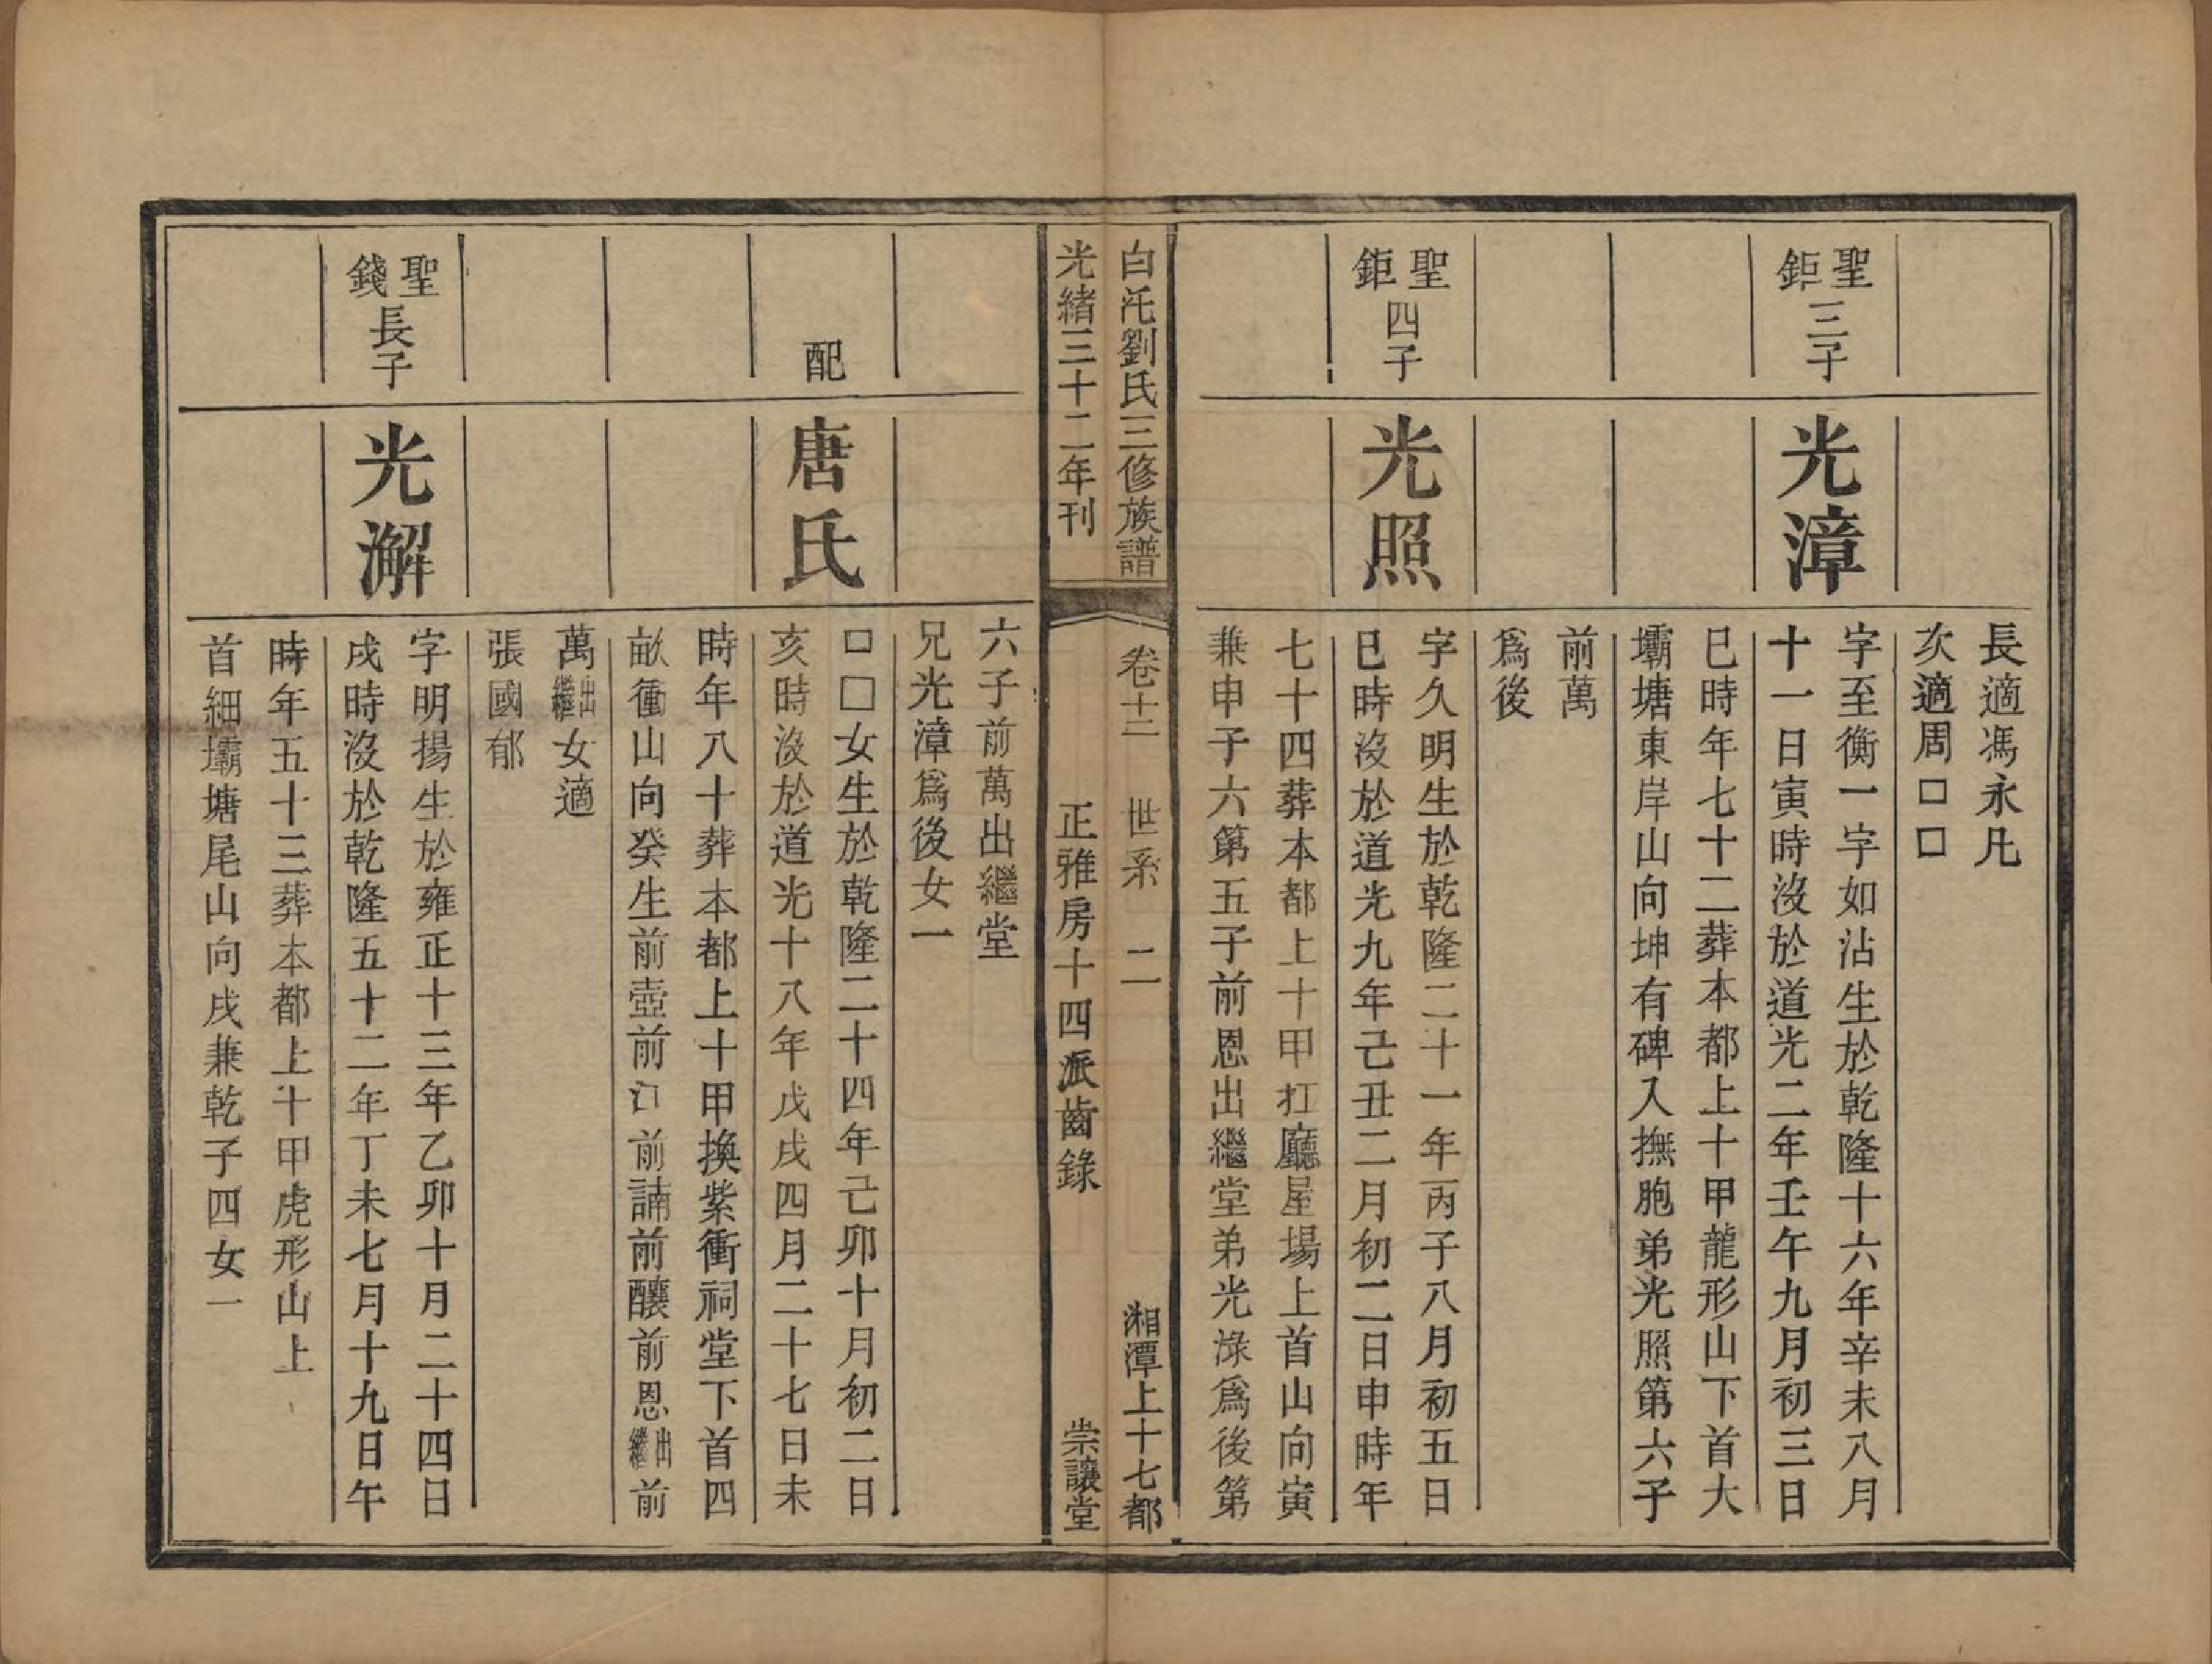 長適馮永凡
次適周囗囗
聖鉅三子
光漳
字至衡一字如沾生於乾隆十六年辛未八月
十一日寅時沒於道光二年壬午九月初三日
巳時年七十二葬本都上十甲龍形山下首大
壩塘東岸山向坤有碑入撫胞弟光照第六子
前萬
爲後
聖鉅四子
光照
字久明生於乾隆二十一年丙子八月初五日
巳時沒於道光九年己丑二月初二日申時年
七十四葬本都上十甲扛廳屋場上首山向寅
兼申子六第五子前恩出繼堂弟光淥爲後第
白汑劉氏三修族譜
卷十二 世系 二
湘潭上十七都
光緒三十二年刊
正雅房十四派齒錄
崇讓堂
六子前萬出繼堂
兄光漳爲後女一
配
唐氏
囗囗女生於乾隆二十四年己卯十月初二日
亥時沒於道光十八年戊戌四月二十七日未
時年八十葬本都上十甲換紫衝祠堂下首四
畝衝山向癸生前壺前江前諵前釀前恩出繼前
萬出繼女適
張國郁
聖錢長子
光澥
字明揚生於雍正十三年乙卯十月二十四日
戌時沒於乾隆五十二年丁未七月十九日午
時年五十三葬本都上十甲虎形山上
首細壩塘尾山向戌兼乾子四女一